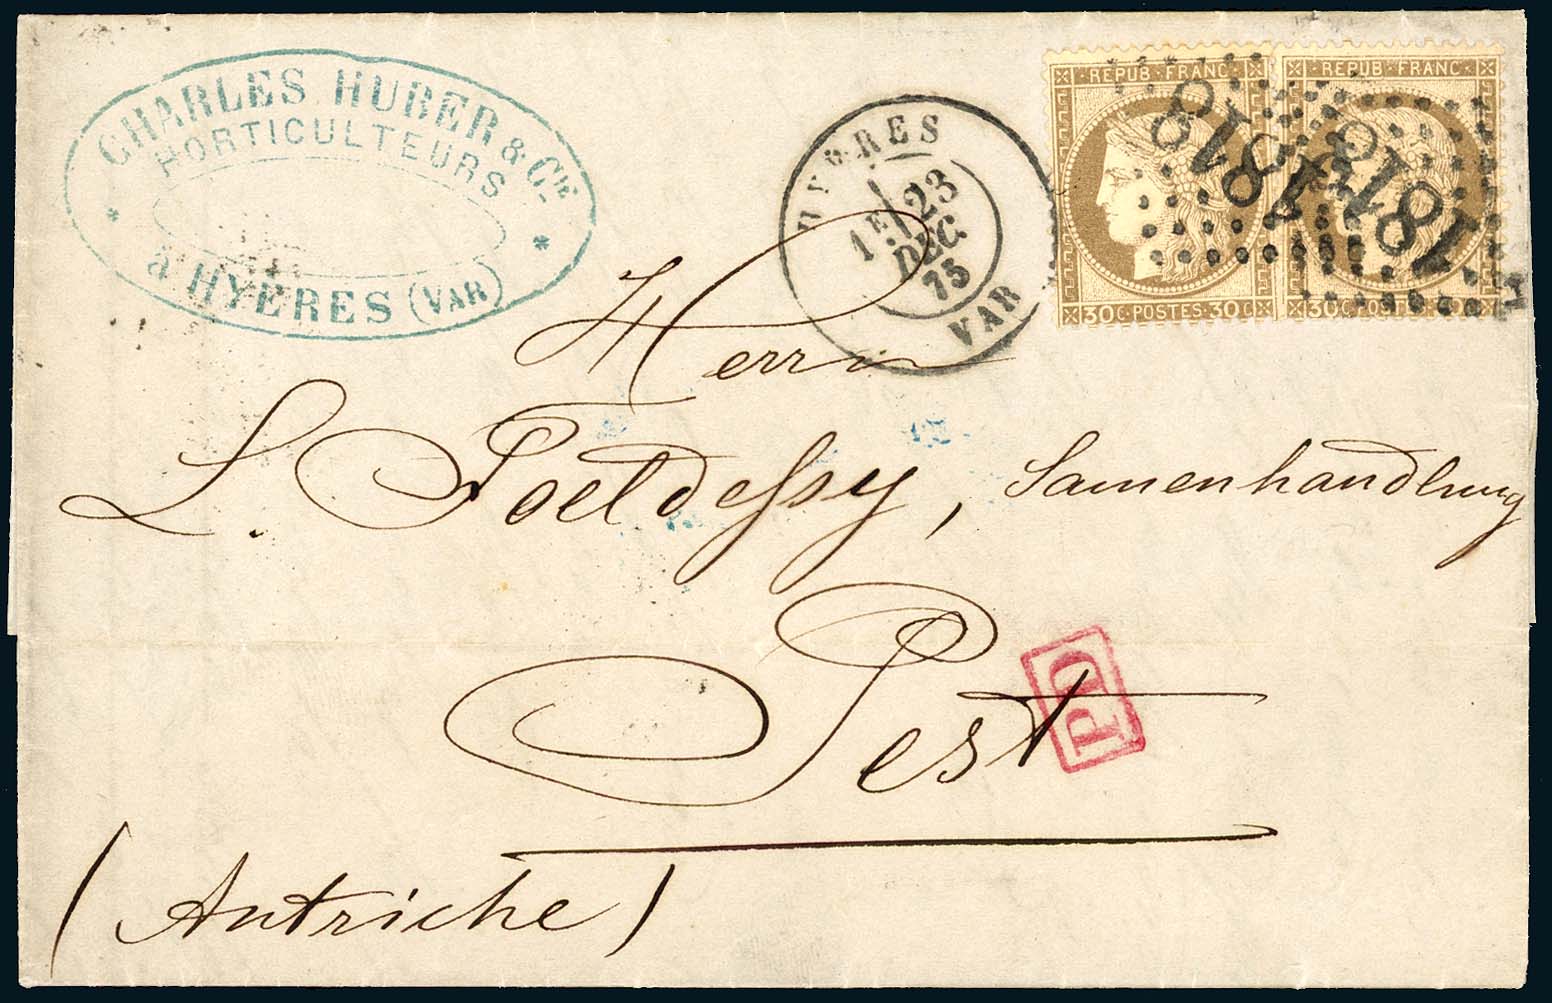 CHARLES HUBER & Cie
HORTICULTEURS
à HYÈRES (VAR)
HYERES
1E 23
DEC.
75
VAR
REPUB FRANC
30 C. POSTES 30 C.
REPUB FRANC
30 C. POSTES
1818
1818
Herrn
L. Poeldessy, Samenhandlung
Pest
PD
(Autriche)